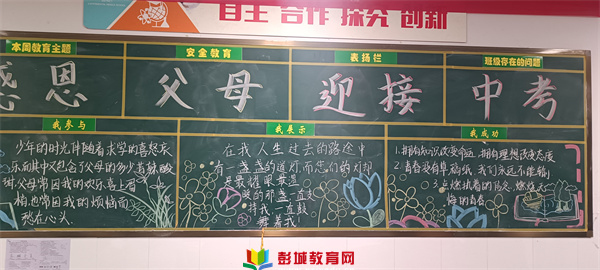 自主 合作 探究 创新
本周教育主题
安全教育
表扬栏
班级存在的问题
感恩 父母 迎接 中考
我参与
我展示
我成功
少年的时光伴随着求学的喜怒哀
乐而其中又包含了父母的多少辛酸
父母常因我的欢乐喜上眉
梢也常因我的烦恼而
愁在心头
在我人生过去的路途中
有一盏盏的道灯而您们的灯
是最耀眼
的那一
直鼓
舞着我
1.拥有知识改变命运，拥有理想改变态度
2.青春没有草稿纸，我们永远不能输
3.点燃执着的信念，燃烧无
悔的青春
彭城教育网